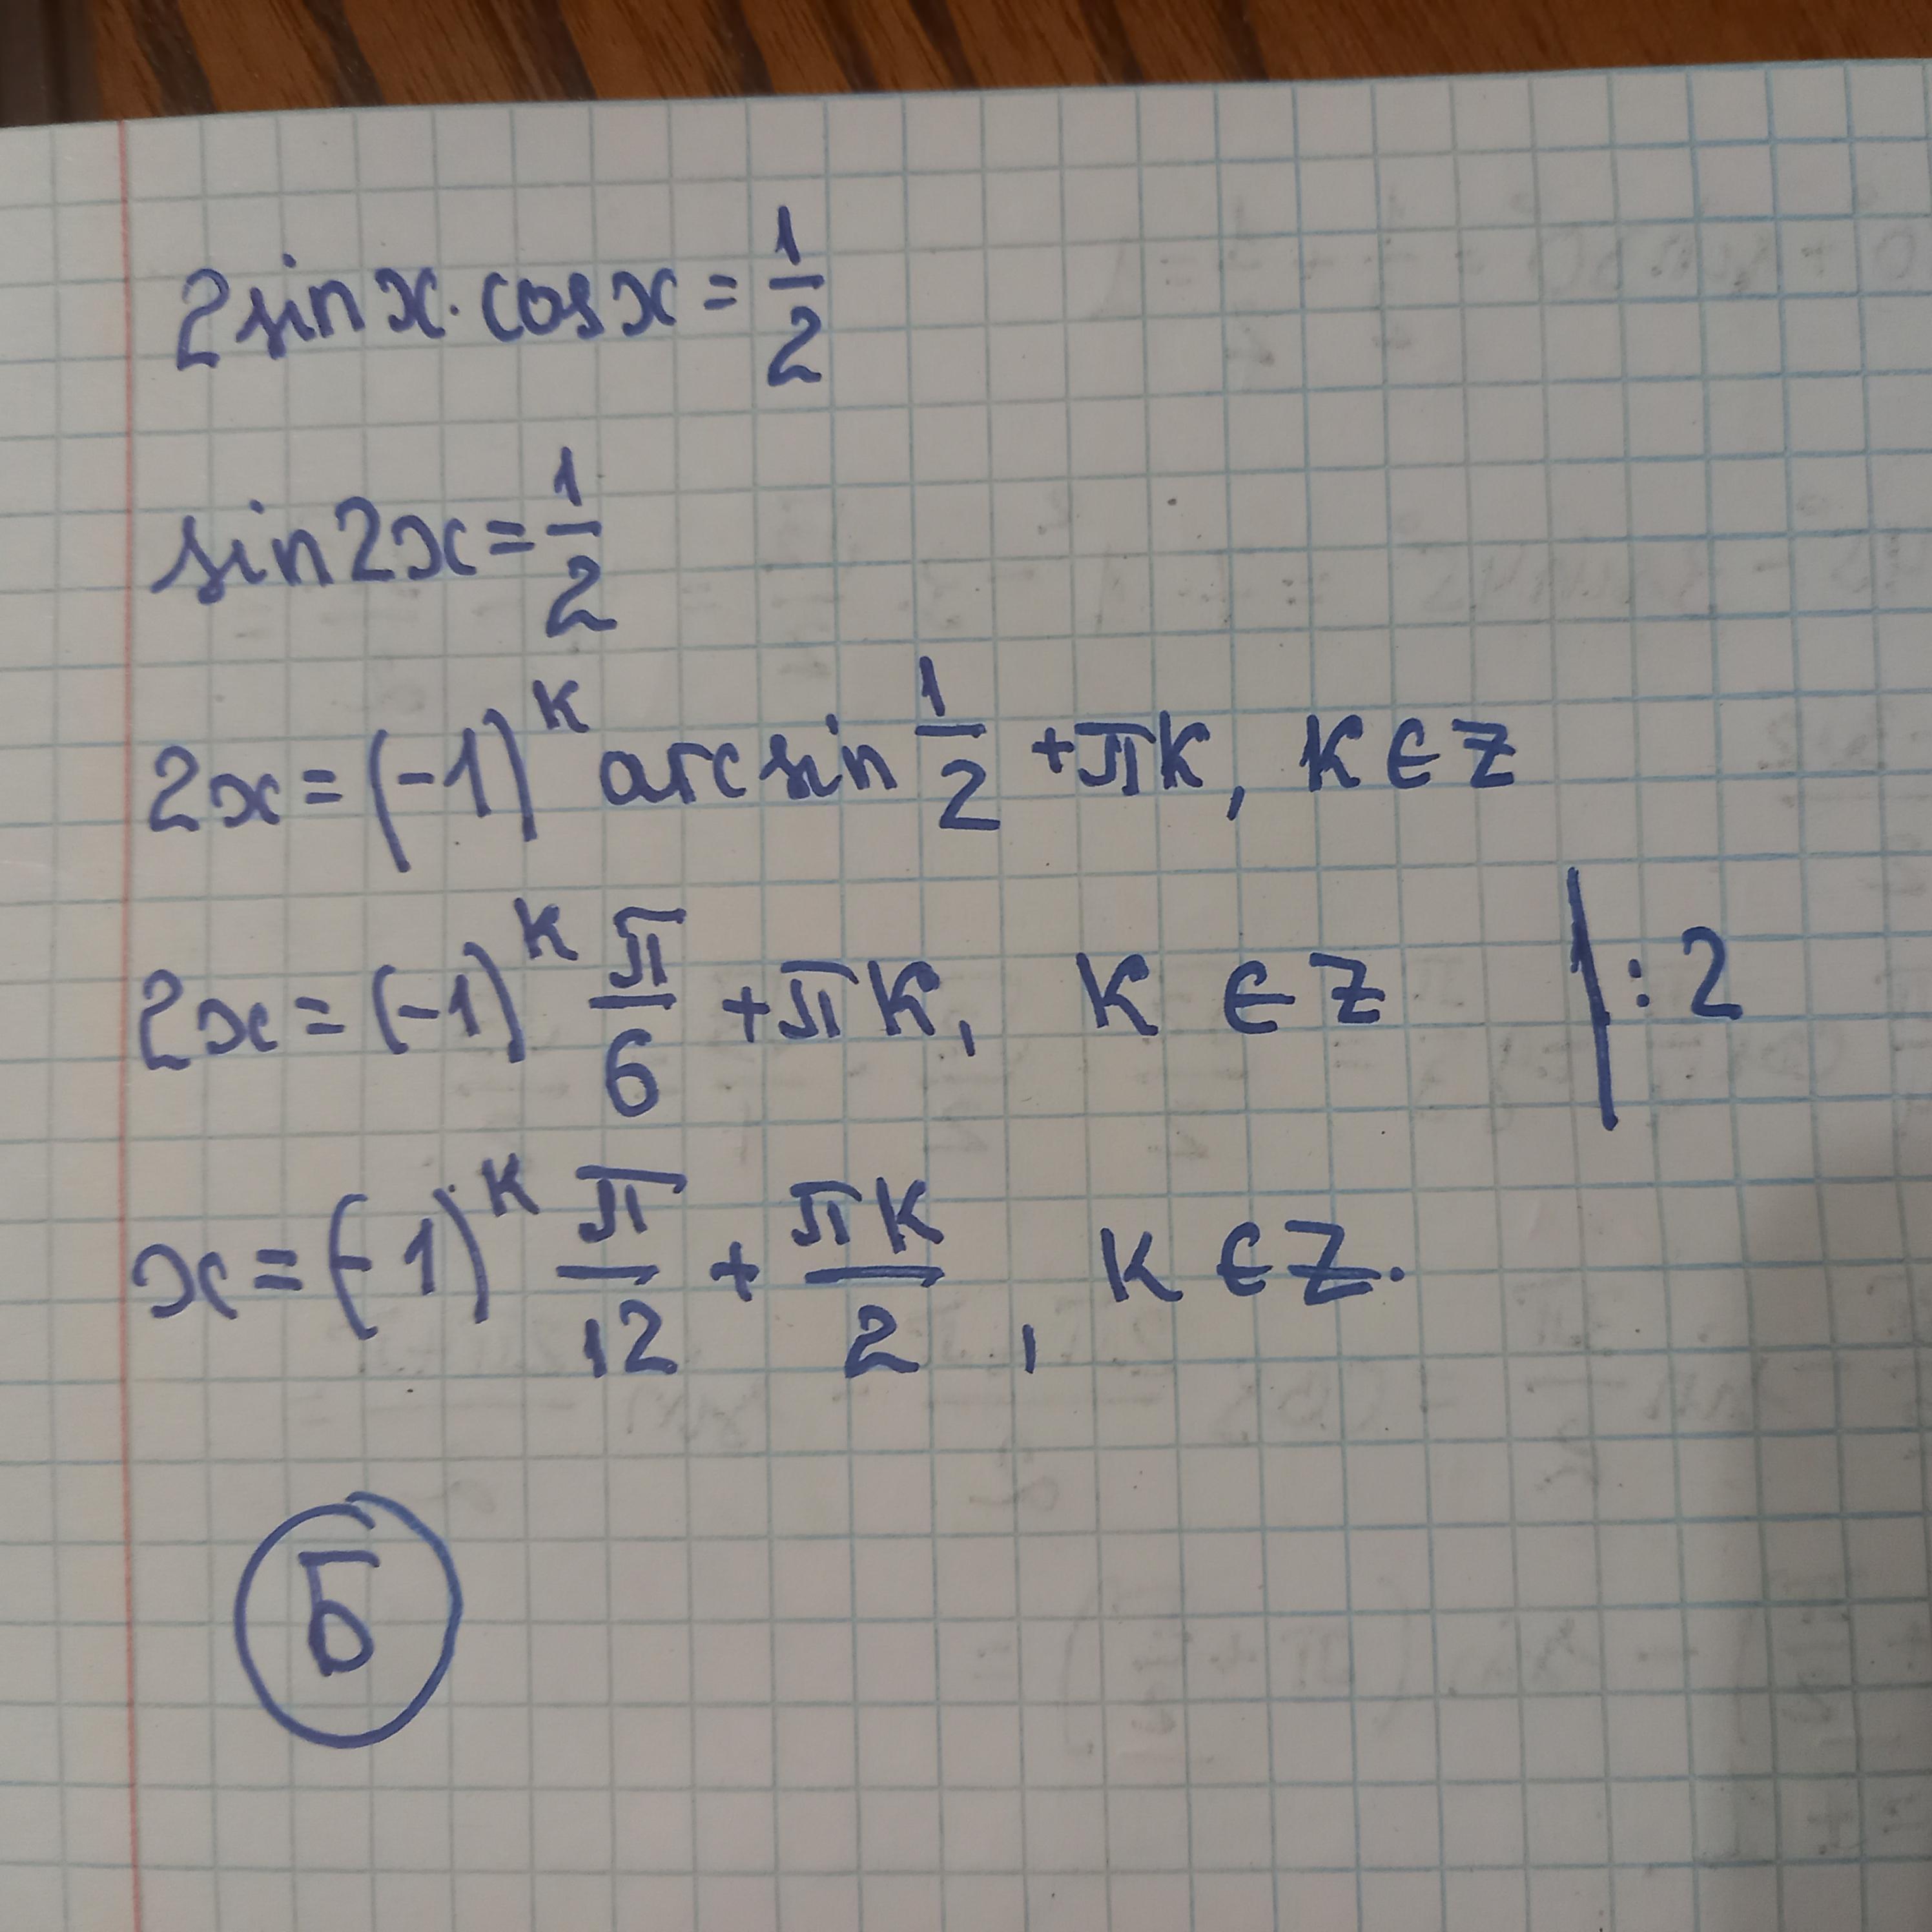 2sinx·cosx=1/2
sin2x=1/2
2x=(-1)^k arcsin 1/2 +πk, k∈Z
2x=(-1)^k π/6 +πk, k ∈ Z |:2
x=(-1)^k π/12 + πk/2, k ∈ Z.
Б